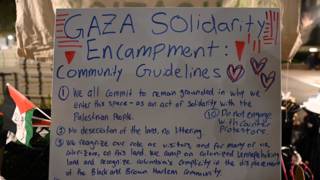 GAZA SOLIDARITY
ENCAMPMENT:
Community Guidelines
① We all commit to remain grounded in why we
enter this space - as an act of solidarity with the
Palestinian People.
⑩ Do not engage
with counter
Protestors
② No desecration of the land, no littering.
③ We recognize our role as visitors, and for many of us,
colonizers, on this land. We camp on colonized Lennapehoking
land and recognize Columbia's complicity of the displacement
of the Black and Brown Harlem community.